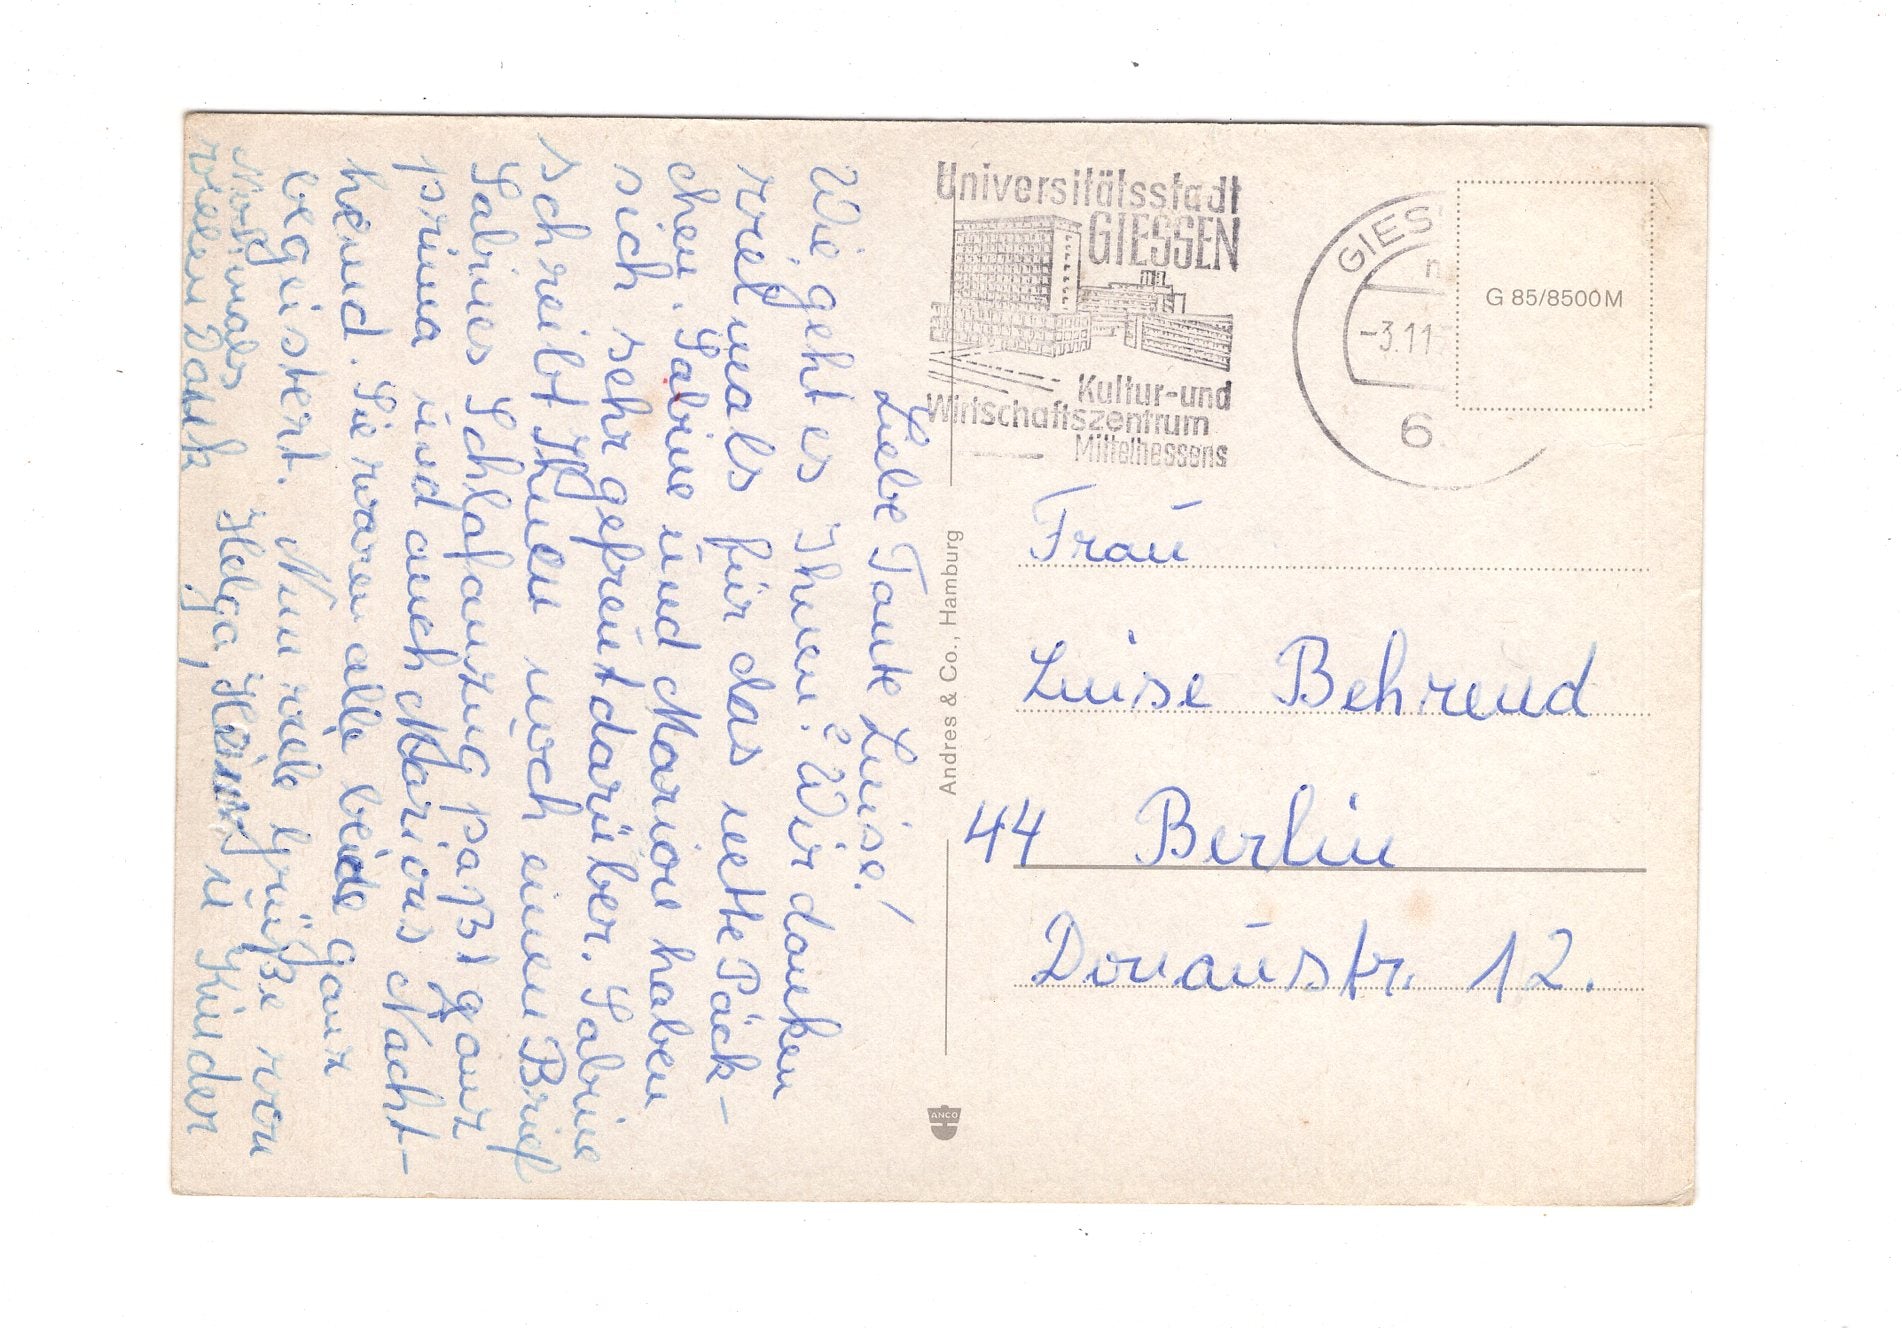 Liebe Tante Luise!
Wie geht es Ihnen? Wir danken
vielmals für das nette Päck-
chen. Sabine und Marion haben
sich sehr gefreut darüber. Sabine
schreibt Ihnen noch einen Brief
Sabines Schlafanzug paßt ganz
prima und auch Marions Nacht-
hemd. Sie waren alle beide ganz
begeistert. Nun viele Grüße von
Nochmals Helga, Heinz u Kinder
vielen Dank.
Universitätsstadt
GIESSEN
Kultur-und
Wirtschaftszentrum
Mittelhessens
GIES
-3.11
6
G 85/8500 M
Andres & Co., Hamburg
ANCO
Frau
Luise Behrend
44 Berlin
Donaustr. 12.